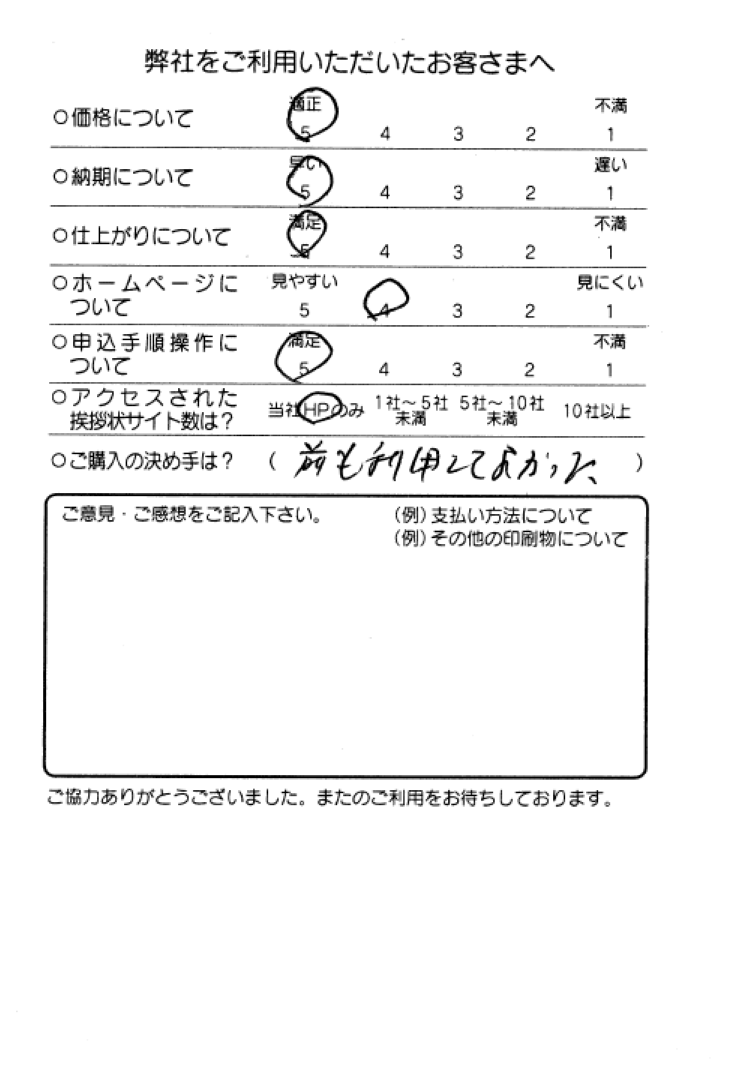 弊社をご利用いただいたお客さまへ
適正 不満
○価格について 5 4 3 2 1
早い 遅い
○納期について 5 4 3 2 1
満足 不満
○仕上がりについて 5 4 3 2 1
○ホームページに 見やすい 見にくい
ついて 5 4 3 2 1
○申込手順操作に 満足 不満
ついて 5 4 3 2 1
○アクセスされた
挨拶状サイト数は? 当社HPのみ 1社〜5社未満 5社〜10社未満 10社以上
○ご購入の決め手は? (前も利用してよかった)
ご意見・ご感想をご記入下さい。 (例)支払い方法について
(例)その他の印刷物について
ご協力ありがとうございました。またのご利用をお待ちしております。